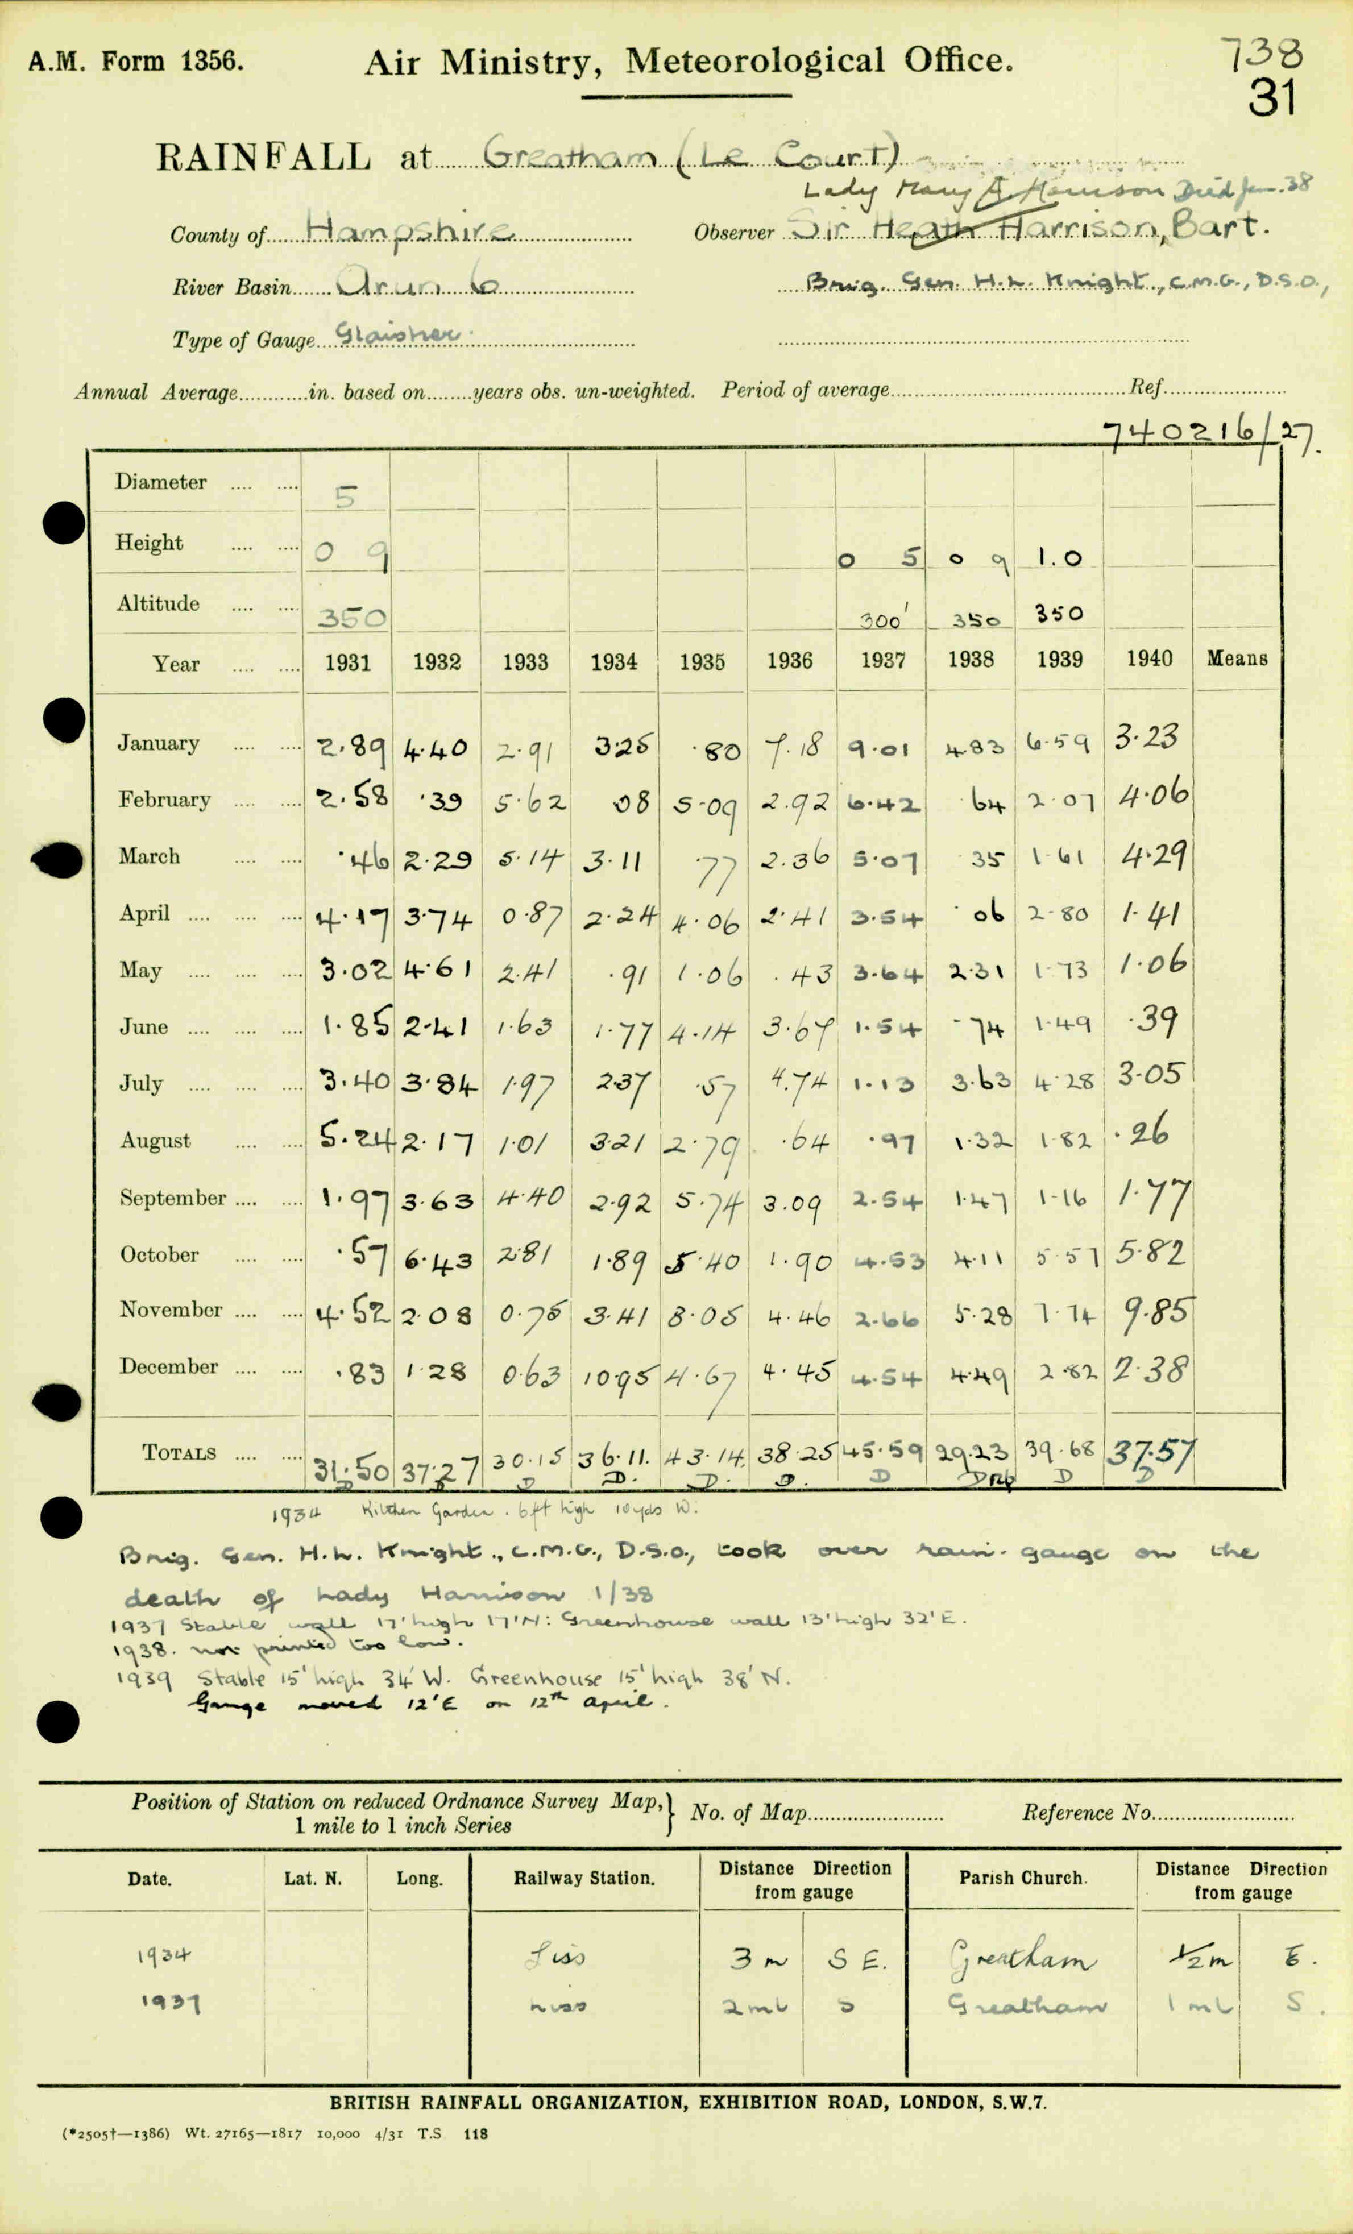 A.M. Form 1356. Air Ministry, Meteorological Office. 738
31
RAINFALL at Greatham (Le Court)
Lady Mary A Harrison Died Jan. 38
County of Hampshire Observer Sir Heath Harrison, Bart.
River Basin Arun 6 Brig. Gen. H.L. Knight., C.M.G., D.S.O.,
Type of Gauge Glaisher
Annual Average in. based on years obs. un-weighted. Period of average Ref.
740216/27.
Diameter 5
Height 0 9 0 5 0 9 1.0
Altitude 350 300' 350 350
Year 1931 1932 1933 1934 1935 1936 1937 1938 1939 1940 Means
January 2.89 4.40 2.91 3.25 .80 7.18 9.01 4.83 6.59 3.23
February 2.58 .39 5.62 08 5.09 2.92 6.42 .64 2.07 4.06
March .46 2.29 5.14 3.11 .77 2.36 5.07 35 1.61 4.29
April 4.17 3.74 0.87 2.24 4.06 2.41 3.54 .06 2.80 1.41
May 3.02 4.61 2.41 .91 1.06 .43 3.64 2.31 1.73 1.06
June 1.85 2.41 1.63 1.77 4.14 3.67 1.54 .74 1.49 .39
July 3.40 3.84 1.97 2.37 .57 4.74 1.13 3.63 4.28 3.05
August 5.24 2.17 1.01 3.21 2.79 .64 .97 1.32 1.82 .26
September 1.97 3.63 4.40 2.92 5.74 3.09 2.54 1.47 1.16 1.77
October .57 6.43 2.81 1.89 5.40 1.90 4.53 4.11 5.57 5.82
November 4.52 2.08 0.75 3.41 8.05 4.46 2.66 5.28 7.74 9.85
December .83 1.28 0.63 10.95 4.67 4.45 4.54 4.49 2.82 2.38
TOTALS 31.50 37.27 30.15 36.11. 43.14. 38.25 45.59 29.23 39.68 37.57
D D D D. D. D. D D D D
1934 Kitchen Garden. 6ft high 10yds W.
Brig. Gen. H.L. Knight., C.M.G., D.S.O., took over rain-gauge on the
death of Lady Harrison 1/38
1937 Stable wall 17'high 17'N: Greenhouse wall 13'high 32'E.
1938. not printed too low.
1939 Stable 15'high 34'W. Greenhouse 15'high 38'N.
Gauge moved 12'E on 12th April.
Position of Station on reduced Ordnance Survey Map, 1 mile to 1 inch Series } No. of Map Reference No.
Date. Lat. N. Long. Railway Station. Distance Direction from gauge Parish Church. Distance Direction from gauge
1934 Liss 3 m S E. Greatham 1/2 m E.
1937 Liss 2 ml S Greatham 1 ml S.
BRITISH RAINFALL ORGANIZATION, EXHIBITION ROAD, LONDON, S.W.7.
(*2505†—1386) Wt. 27165—1817 10,000 4/31 T.S. 118